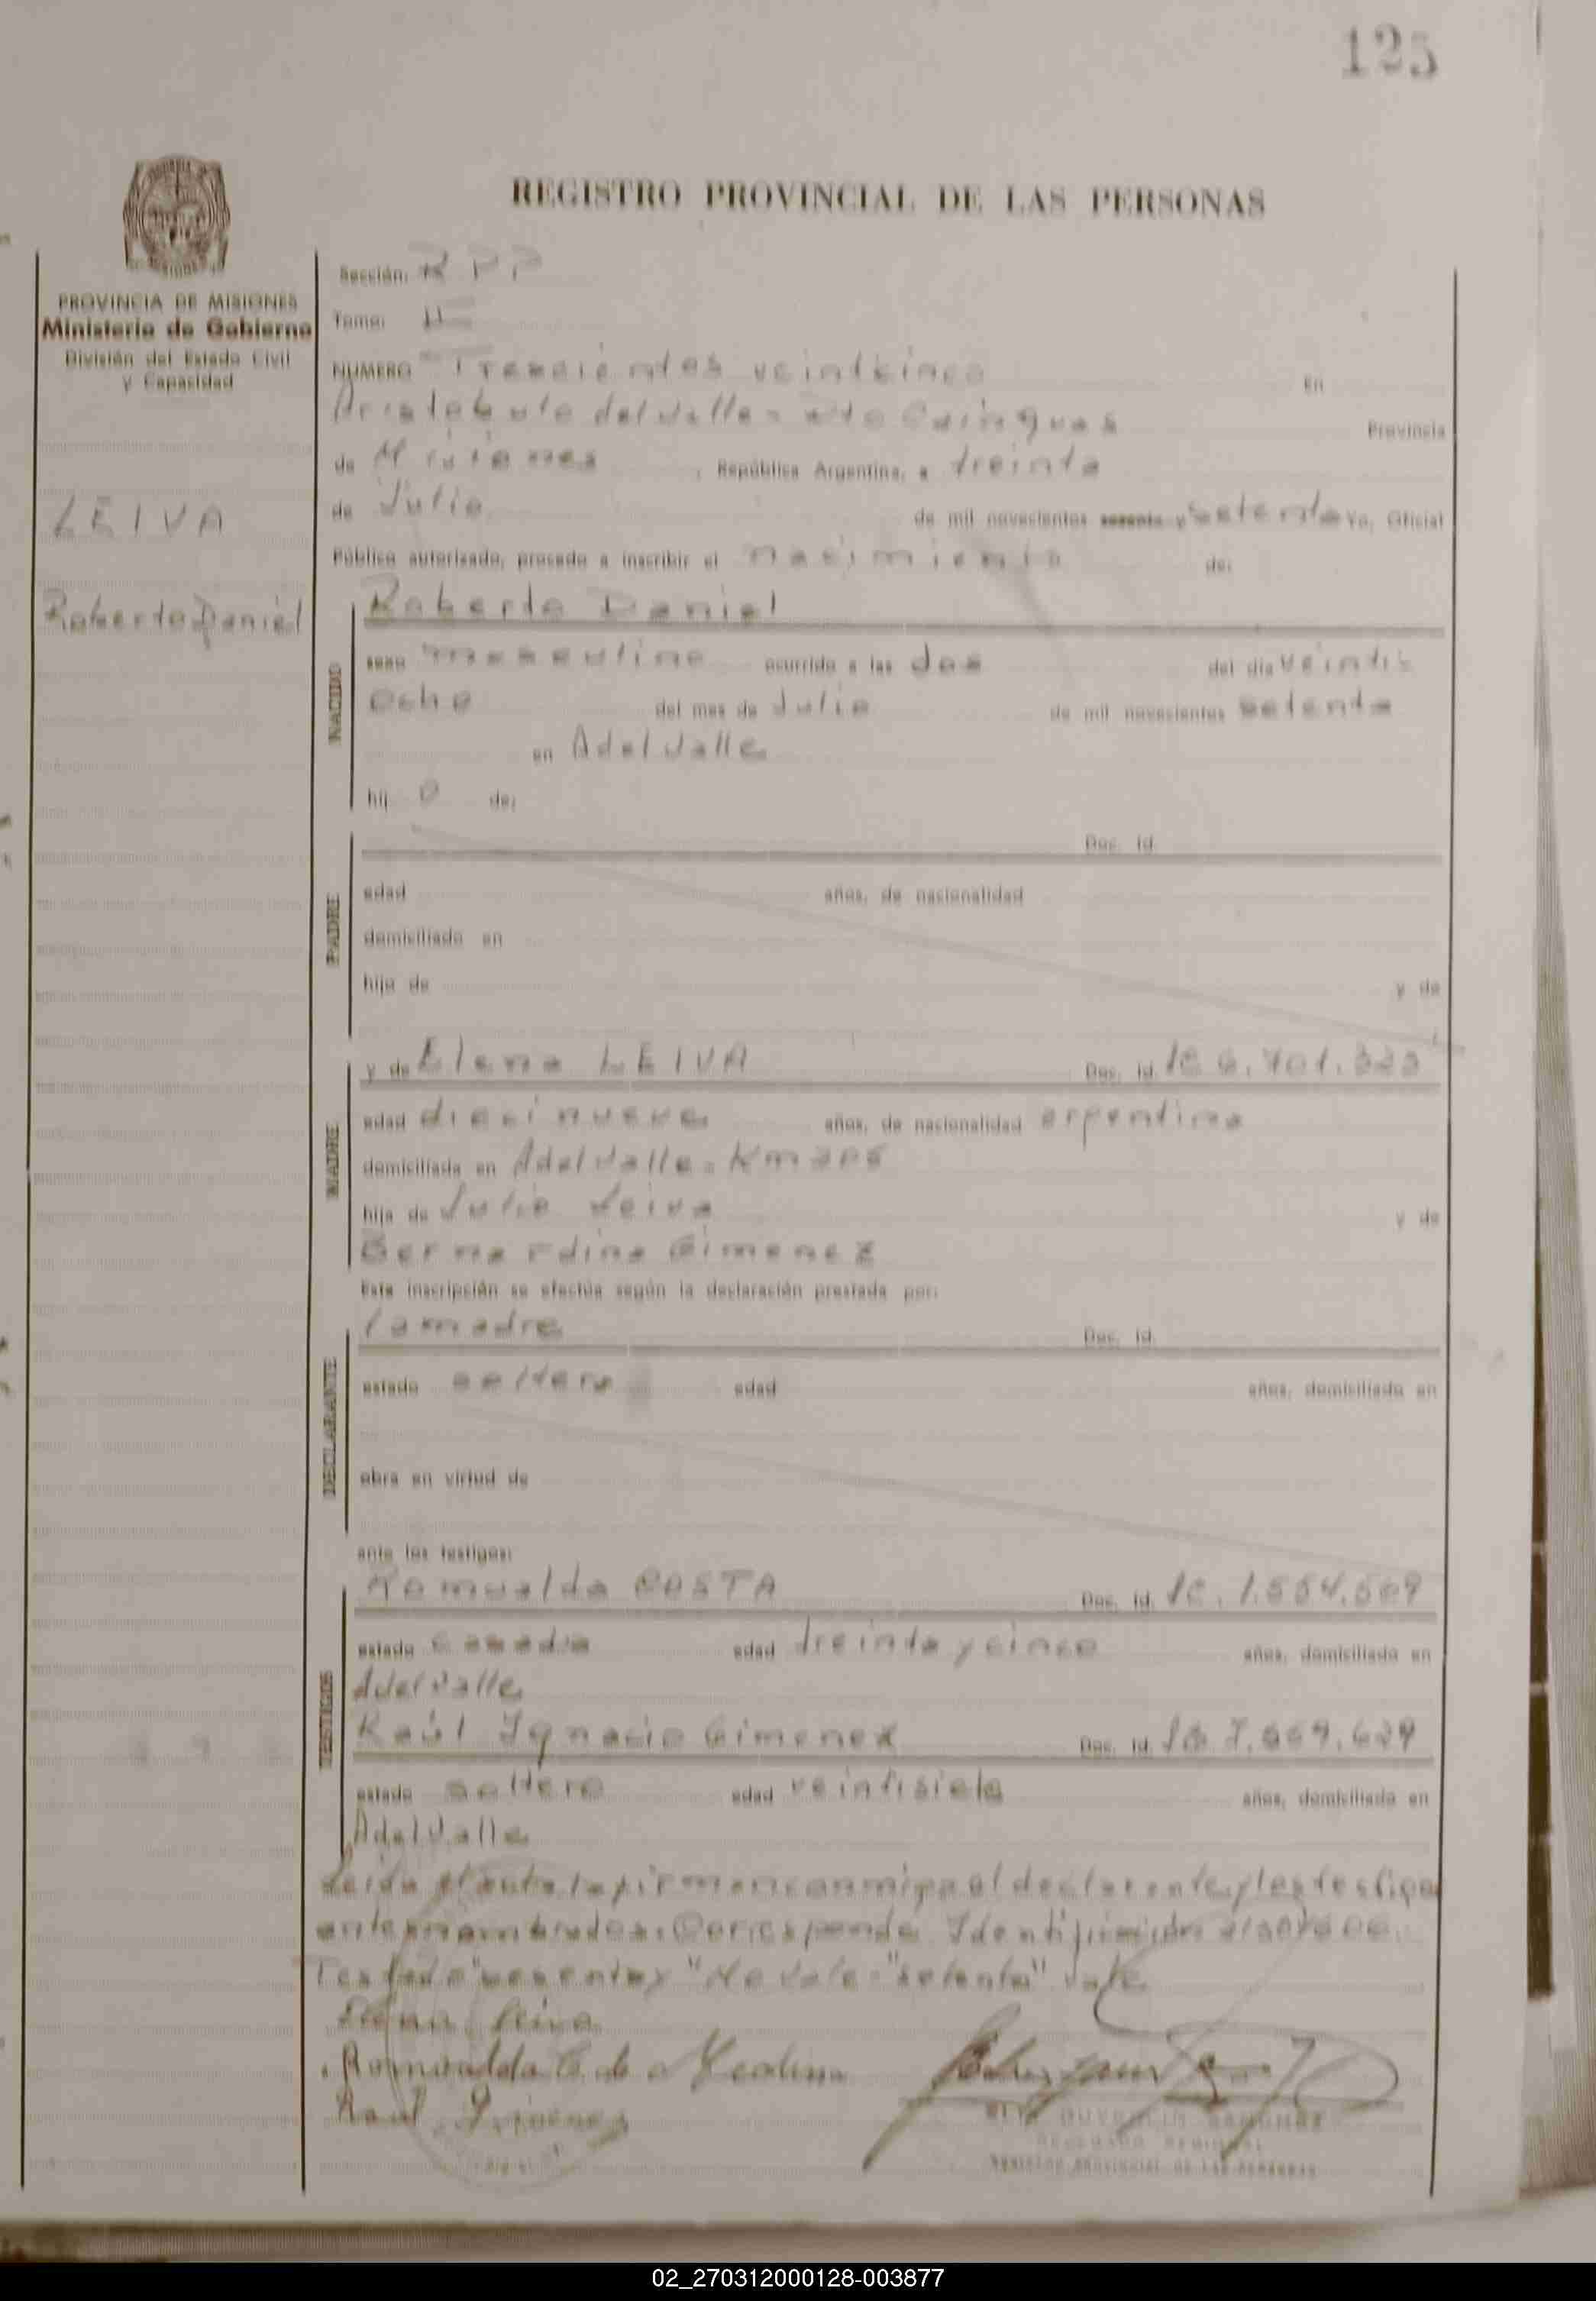 125
REGISTRO PROVINCIAL DE LAS PERSONAS
PROVINCIA DE MISIONES
Ministerio de Gobierno
División del Estado Civil
y Capacidad
LEIVA
Roberto Daniel
Sección: RPP
Tomo: II
NUMERO Trescientos veinticinco En
Aristobulo del Valle - Dto Cainguas Provincia
de Misiones, República Argentina, a treinta
de Julio de mil novecientos sesenta y setenta Yo, Oficial
Público autorizado, procedo a inscribir el nacimiento de:
NACIDO
Roberto Daniel
sexo masculino ocurrido a las dos del día veinti
ocho del mes de Julio de mil novecientos setenta
en A del Valle
hij o de:
PADRE
Doc. Id.
edad años, de nacionalidad
domiciliado en
hijo de y de
MADRE
y de Elena LEIVA Doc. Id.
edad diecinueve años, de nacionalidad argentina
domiciliada en A del Valle - Km
hija de Julio Leiva y de
Bernardina Gimenez
Esta inscripción se efectúa según la declaración prestada por:
DECLARANTE
la madre Doc. Id.
estado soltera edad años, domiciliado en
obra en virtud de
ante los testigos:
TESTIGOS
Romualda COSTA Doc. Id.
estado casada edad treinta y cinco años, domiciliado en
A del Valle
Raúl Ignacio Gimenez Doc. Id.
estado soltero edad veintisiete años, domiciliado en
A del Valle
Leida el acta la firman conmigo el declarante y los testigos
antes nombrados. Corresponde Identificación
Testado "sesenta y" No vale - "setenta" Vale
Elena Leiva
Romualda C. de Medina
Raul Gimenez
REGISTRO PROVINCIAL DE LAS PERSONAS
02_270312000128-003877